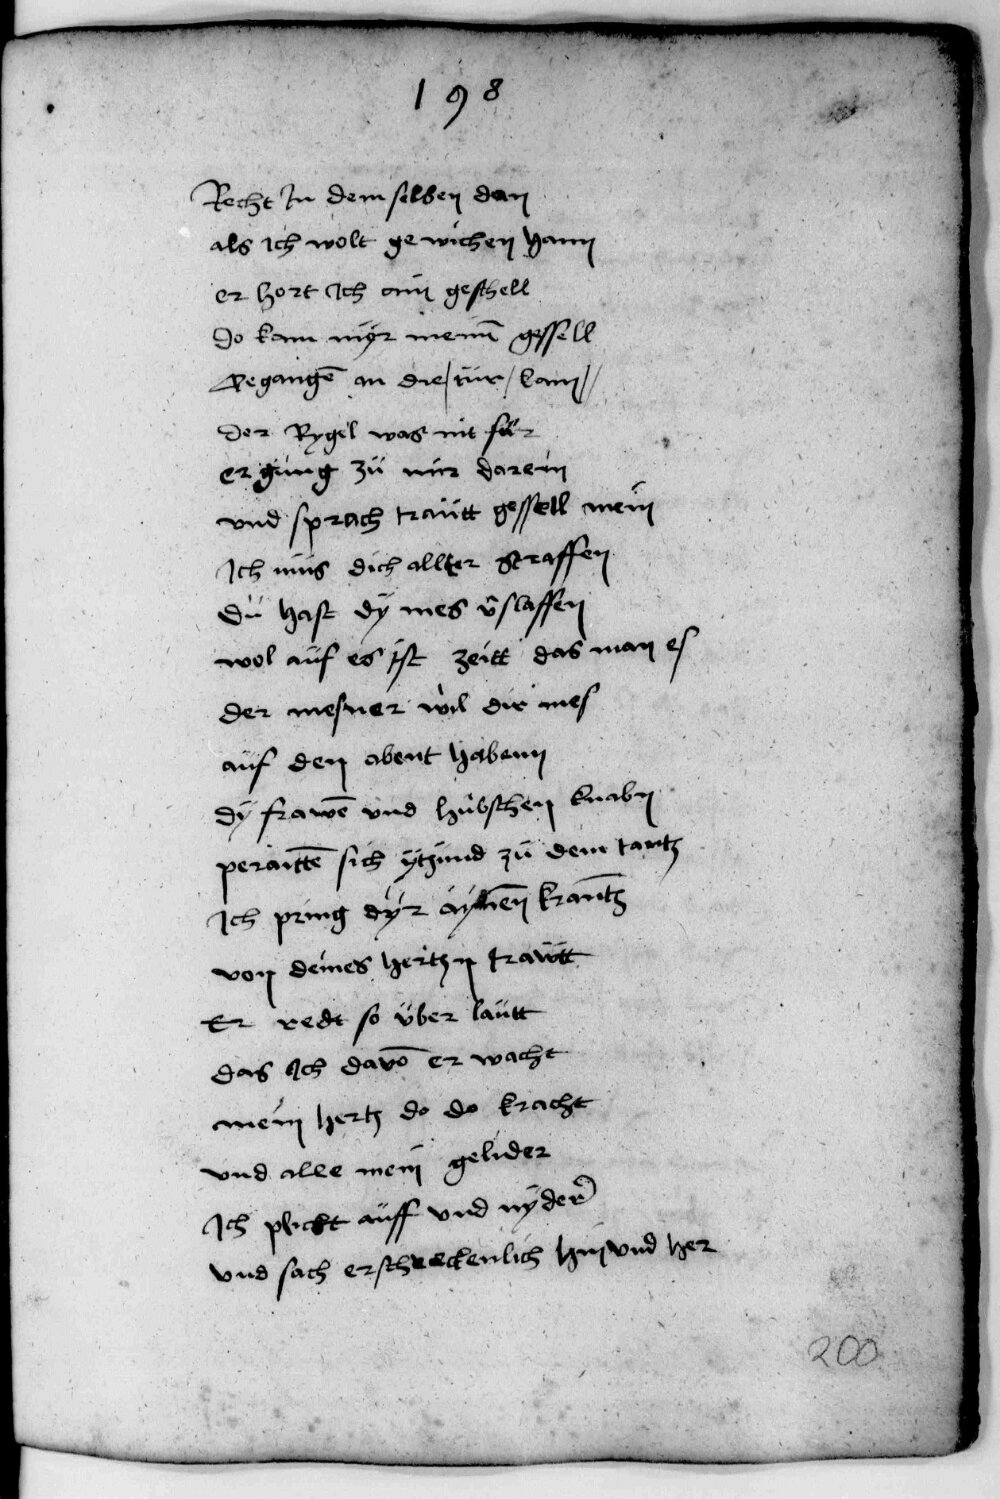 198
Recht In dem selben dan
als ich wolt ge wichen hann
er hort Ich ain geschell
do kam myr meinn gessell
Gegangē an die / tür / kam //
der Rygel was nit für
er gieng zü mir darein
vnd sprach traütt gessell mein
Ich müs dich allter straffen
dü hast dy mes v̄slaffen
wol aüf es ist zeitt das man es
der mesner wil dir mes
aüf den abent habenn
dy frawē vnd hübschen knabn
peraittē sich ytzünd zü dem tantz
Ich pring dyr aynēn krantz
von deines hertzn trawtt
Er redt so über laütt
das Ich davō er wacht
mein hertz do do kracht
vnd alle mein gelider
Ich plickt aüff vnd nyder
vnd sach erschreckenlich hin vnd her
200